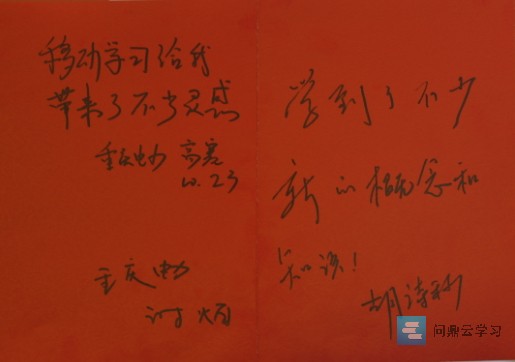 移动学习给我
带来了不少灵感
重庆电力 高寒
10.23
重庆电力
学到了不少
新的概念和
知识！
胡诗
问鼎云学习